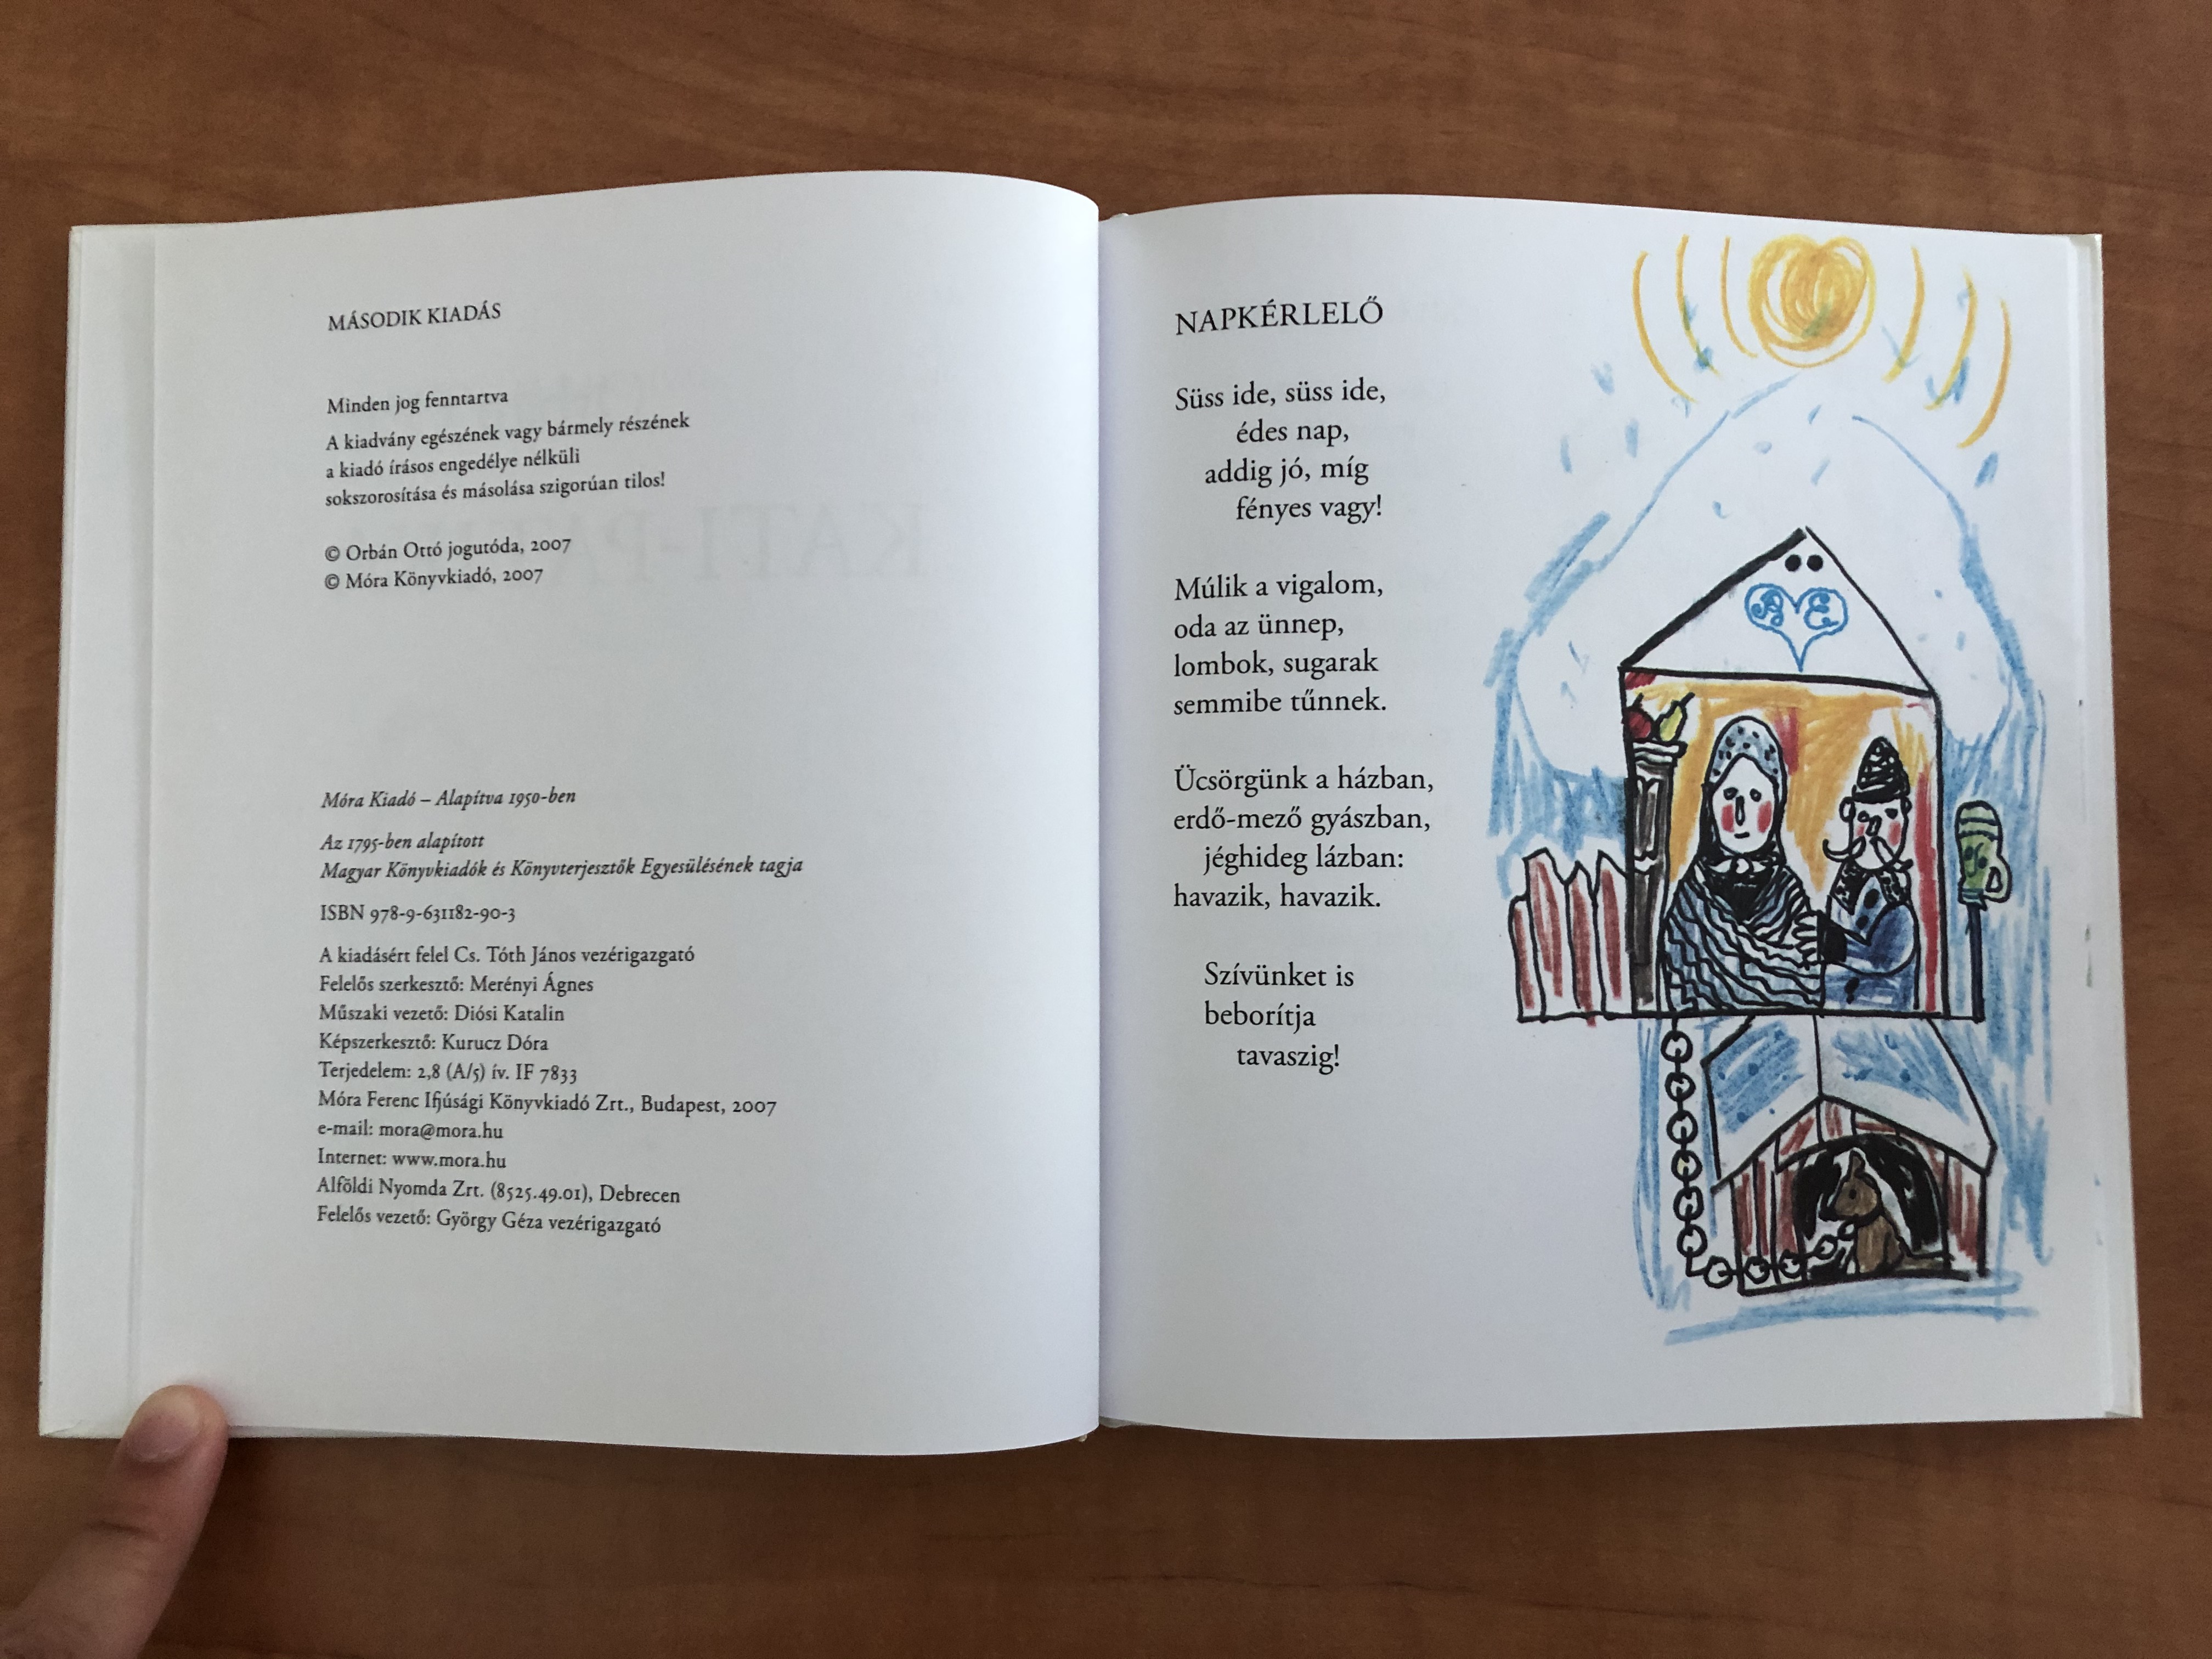 MÁSODIK KIADÁS
Minden jog fenntartva
A kiadvány egészének vagy bármely részének
a kiadó írásos engedélye nélküli
sokszorosítása és másolása szigorúan tilos!
© Orbán Ottó jogutóda, 2007
© Móra Könyvkiadó, 2007
Móra Kiadó – Alapítva 1950-ben
Az 1795-ben alapított
Magyar Könyvkiadók és Könyvterjesztők Egyesülésének tagja
ISBN 978-9-631182-90-3
A kiadásért felel Cs. Tóth János vezérigazgató
Felelős szerkesztő: Merényi Ágnes
Műszaki vezető: Diósi Katalin
Képszerkesztő: Kurucz Dóra
Terjedelem: 2,8 (A/5) ív. IF 7833
Móra Ferenc Ifjúsági Könyvkiadó Zrt., Budapest, 2007
e-mail: mora@mora.hu
Internet: www.mora.hu
Alföldi Nyomda Zrt. (8525.49.01), Debrecen
Felelős vezető: György Géza vezérigazgató
NAPKÉRLELŐ
Süss ide, süss ide,
édes nap,
addig jó, míg
fényes vagy!
Múlik a vigalom,
oda az ünnep,
lombok, sugarak
semmibe tűnnek.
Ücsörgünk a házban,
erdő-mező gyászban,
jéghideg lázban:
havazik, havazik.
Szívünket is
beborítja
tavaszig!